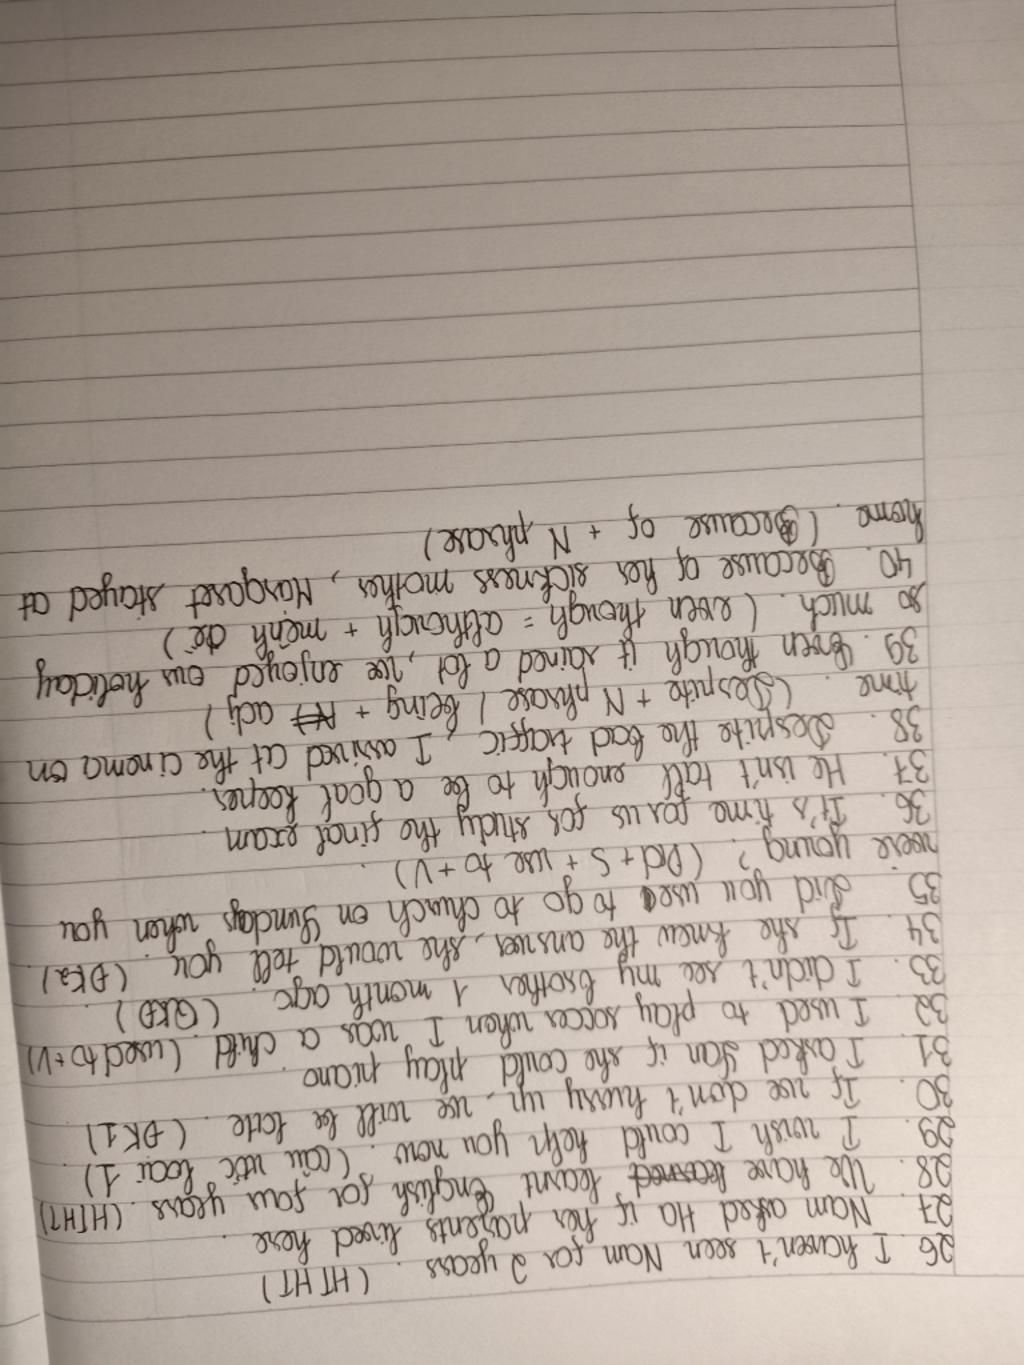 26. I haven't seen Nam for 2 years. (HTHT)
27. Nam asked Ha if her parents lived here.
28. We have learnt English for four years. (HTHT)
29. I wish I could help you now. (câu ước loại 1)
30. If we don't hurry up, we will be late. (ĐK1)
31. I asked Lan if she could play piano.
32. I used to play soccer when I was a child. (used to + V)
33. I didn't see my brother 1 month ago. (QKĐ)
34. If she knew the answer, she would tell you. (ĐK2)
35. Did you use to go to church on Sundays when you
were young? (Did + S + use to + V)
36. It's time for us for study the final exam.
37. He isn't tall enough to be a goal keeper.
38. Despite the bad traffic, I arrived at the cinema on
time. (Despite + N phrase / being + adj)
39. Even though it rained a lot, we enjoyed our holiday
so much. (even though = although + mệnh đề)
40. Because of her sickness mother, Margaret stayed at
home. (Because of + N phrase)